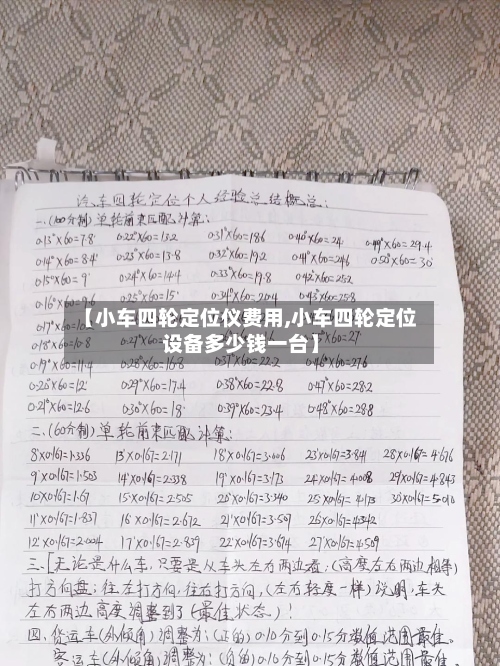 汽车四轮定位个人经验总结概总:
一、(100分制)单轮前束匹配计算:
0.13°X60=7.8 0.22°X60=13.2 0.31°X60=18.6 0.40°X60=24 0.49°X60=29.4
0.14°X60=8.4 0.23°X60=13.8 0.32°X60=19.2 0.41°X60=24.6 0.50°X60=30
0.15°X60=9 0.24°X60=14.4 0.33°X60=19.8 0.42°X60=25.2
0.16°X60=9.6 0.25°X60=15 0.34°X60=20.4 0.43°X60=25.8
【小车四轮定位仪费用,小车四轮定位
设备多少钱一台】
0.19°X60=11.4 0.28°X60=16.8 0.37°X60=22.2 0.46°X60=27.6
0.20°X60=12 0.29°X60=17.4 0.38°X60=22.8 0.47°X60=28.2
0.21°X60=12.6 0.30°X60=18 0.39°X60=23.4 0.48°X60=28.8
二、(60分制)单轮前束匹配计算:
8'X0.167=1.336 13'X0.167=2.171 18'X0.167=3.006 23'X0.167=3.841 28'X0.167=4.676
9'X0.167=1.503 14'X0.167=2.338 19'X0.167=3.173 24'X0.167=4.008 29'X0.167=4.843
10'X0.167=1.67 15'X0.167=2.505 20'X0.167=3.340 25'X0.167=4.173 30'X0.167=5.010
11'X0.167=1.837 16'X0.167=2.672 21'X0.167=3.507 26'X0.167=4.342
12'X0.167=2.004 17'X0.167=2.839 22'X0.167=3.674 27'X0.167=4.509
三、[无论是什么车,只要是从车头左右两边看,(高度左右两边相等)
打方向盘:往左打方向,往右打方向,(左右轻度一样)说明,车头
左右两边高度调整到了(最佳状态)!
四、货运车(外倾角)调整为:(正的)0.10分到0.15分数值范围最佳。
客运车(外倾角)调整为:(负的)0.10分到0.15分数值范围最佳